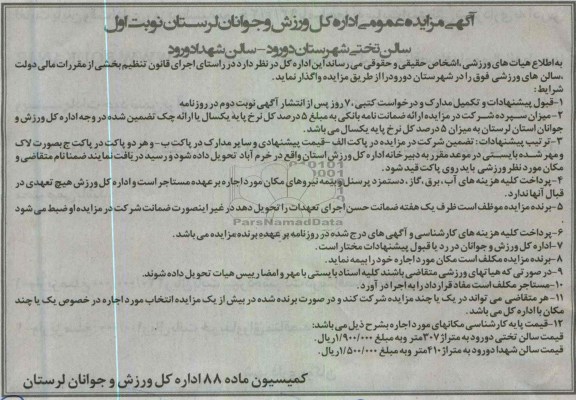 آگهی مزایده عمومی اداره کل ورزش و جوانان لرستان نوبت اول
سالن تختی شهرستان دورود - سالن شهدا دورود
به اطلاع هیات های ورزشی، اشخاص حقیقی و حقوقی می رساند این اداره کل در نظر دارد در راستای اجرای قانون تنظیم بخشی از مقررات مالی دولت
،سالن های ورزشی فوق را در شهرستان دورود را از طریق مزایده واگذار نماید.
شرایط:
۱-قبول پیشنهادات و تکمیل مدارک و درخواست کتبی ۷۰ روز پس از انتشار آگهی نوبت دوم در روزنامه
۲-میزان سپرده شرکت در مزایده ارائه ضمانت نامه بانکی به مبلغ ۵ درصد کل نرخ پایه یکسال یا ارائه چک تضمین شده در وجه اداره کل ورزش و
جوانان استان لرستان به میزان ۵ درصد کل نرخ پایه یکسال می باشد.
۳-ترتیب پیشنهادات: تضمین شرکت در مزایده در پاکت الف -قیمت پیشنهادی و سایر مدارک در پاکت ب - و هر دو پاکت در پاکت ج بصورت لاک
و مهر شده بایستی در موعد مقرر به دبیرخانه اداره کل ورزش استان واقع در خرم آباد تحویل داده شود و رسید دریافت نمایند ضمنا نام متقاضی و
مکان مورد نظر ورزشی باید روی پاکت قید شود.
۴-پرداخت کلیه هزینه های آب، برق، گاز، دستمزد پرسنل و بیمه نیروهای مکان مورد اجاره بر عهده مستاجر است و اداره کل ورزش هیچ تعهدی در
قبال آنها ندارد.
۵-برنده مزایده موظف است ظرف یک هفته ضمانت حسن اجرای تعهدات را تحویل دهد در غیر اینصورت ضمانت شرکت در مزایده او ضبط می شود
.
۶-پرداخت کلیه هزینه های کارشناسی و آگهی های درج شده در روزنامه بر عهده برنده مزایده می باشد.
۷-اداره کل ورزش و جوانان در رد یا قبول پیشنهادات مختار است.
۸-برنده مزایده مکلف است مکان مورد اجاره خود را بیمه نماید.
۹-در صورتی که هیاتهای ورزشی متقاضی باشند کلیه اسناد بایستی با مهر و امضا رییس هیات تحویل داده شوند.
۱۰-مستاجر مکلف است مفاد قرارداد را به اجرا در آورد.
۱۱-هر متقاضی می تواند در یک یا چند مزایده شرکت کند و در صورت برنده شده در بیش از یک مزایده انتخاب مورد اجاره در خصوص یک یا چند
مکان با اداره کل می باشد.
۱۲-قیمت پایه کارشناسی مکانهای مورد اجاره بشرح ذیل می باشد:
قیمت سالن تختی دورود به متراژ ۳۰۷ متر و به مبلغ ۱/۹۰۰/۰۰۰ ریال.
قیمت سالن شهدا دورود به متراژ ۴۱۰ متر و به مبلغ ۱/۵۰۰/۰۰۰ ریال.
کمیسیون ماده ۸۸ اداره کل ورزش و جوانان لرستان
ParsNamadData